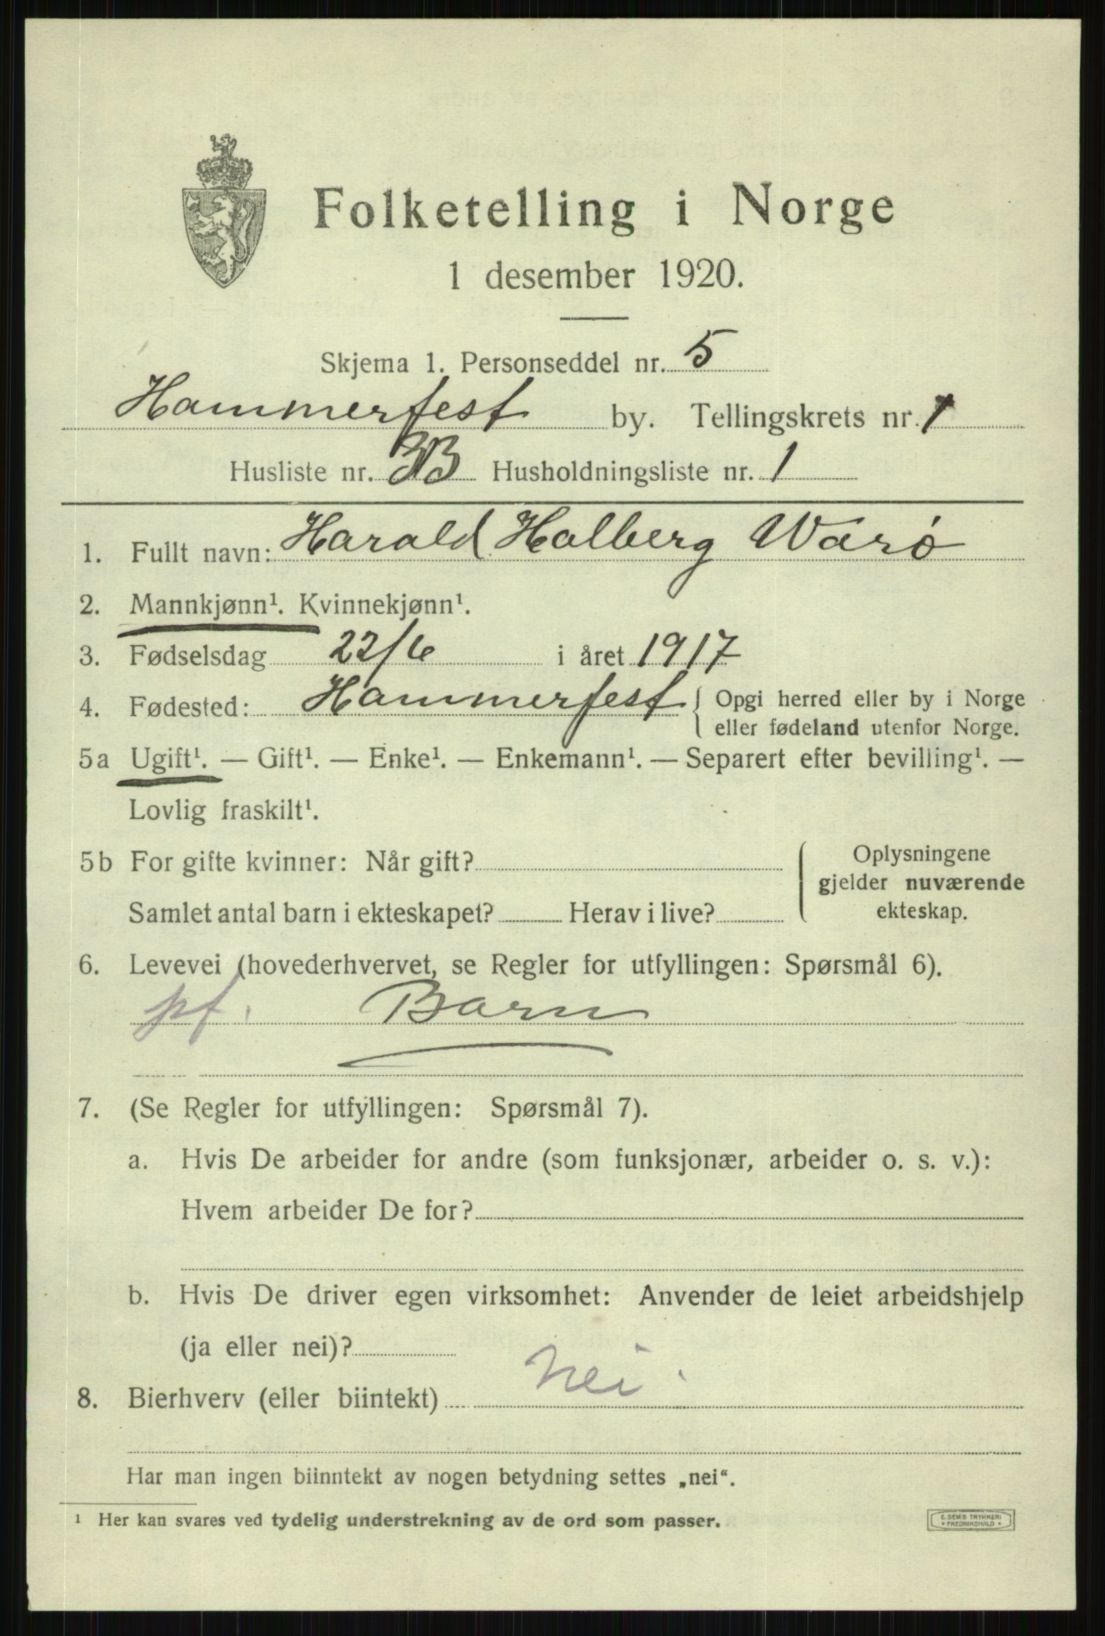 Folketelling i Norge
1 desember 1920.
Skjema 1. Personseddel nr. 5
Hammerfest by. Tellingskrets nr. 1
Husliste nr. 3B Husholdningsliste nr. 1
1. Fullt navn: Harald Halberg Warø
2. Mannkjønn¹. Kvinnekjønn¹.
3. Fødselsdag 22/6 i året 1917
4. Fødested: Hammerfest { Opgi herred eller by i Norge
eller fødeland utenfor Norge.
5a Ugift¹. — Gift¹. — Enke¹. — Enkemann¹. — Separert efter bevilling¹. —
Lovlig fraskilt¹.
5b For gifte kvinner: Når gift?
Samlet antal barn i ekteskapet? Herav i live?
Oplysningene
gjelder nuværende
ekteskap.
6. Levevei (hovederhvervet, se Regler for utfyllingen: Spørsmål 6).
pf. Barn
7. (Se Regler for utfyllingen: Spørsmål 7).
a. Hvis De arbeider for andre (som funksjonær, arbeider o. s. v.):
Hvem arbeider De for?
b. Hvis De driver egen virksomhet: Anvender de leiet arbeidshjelp
(ja eller nei)?
8. Bierhverv (eller biintekt) Nei.
Har man ingen biinntekt av nogen betydning settes „nei“.
¹ Her kan svares ved tydelig understrekning av de ord som passer.
E. SEMS TRYKKERI
• FREDRIKSHALD •